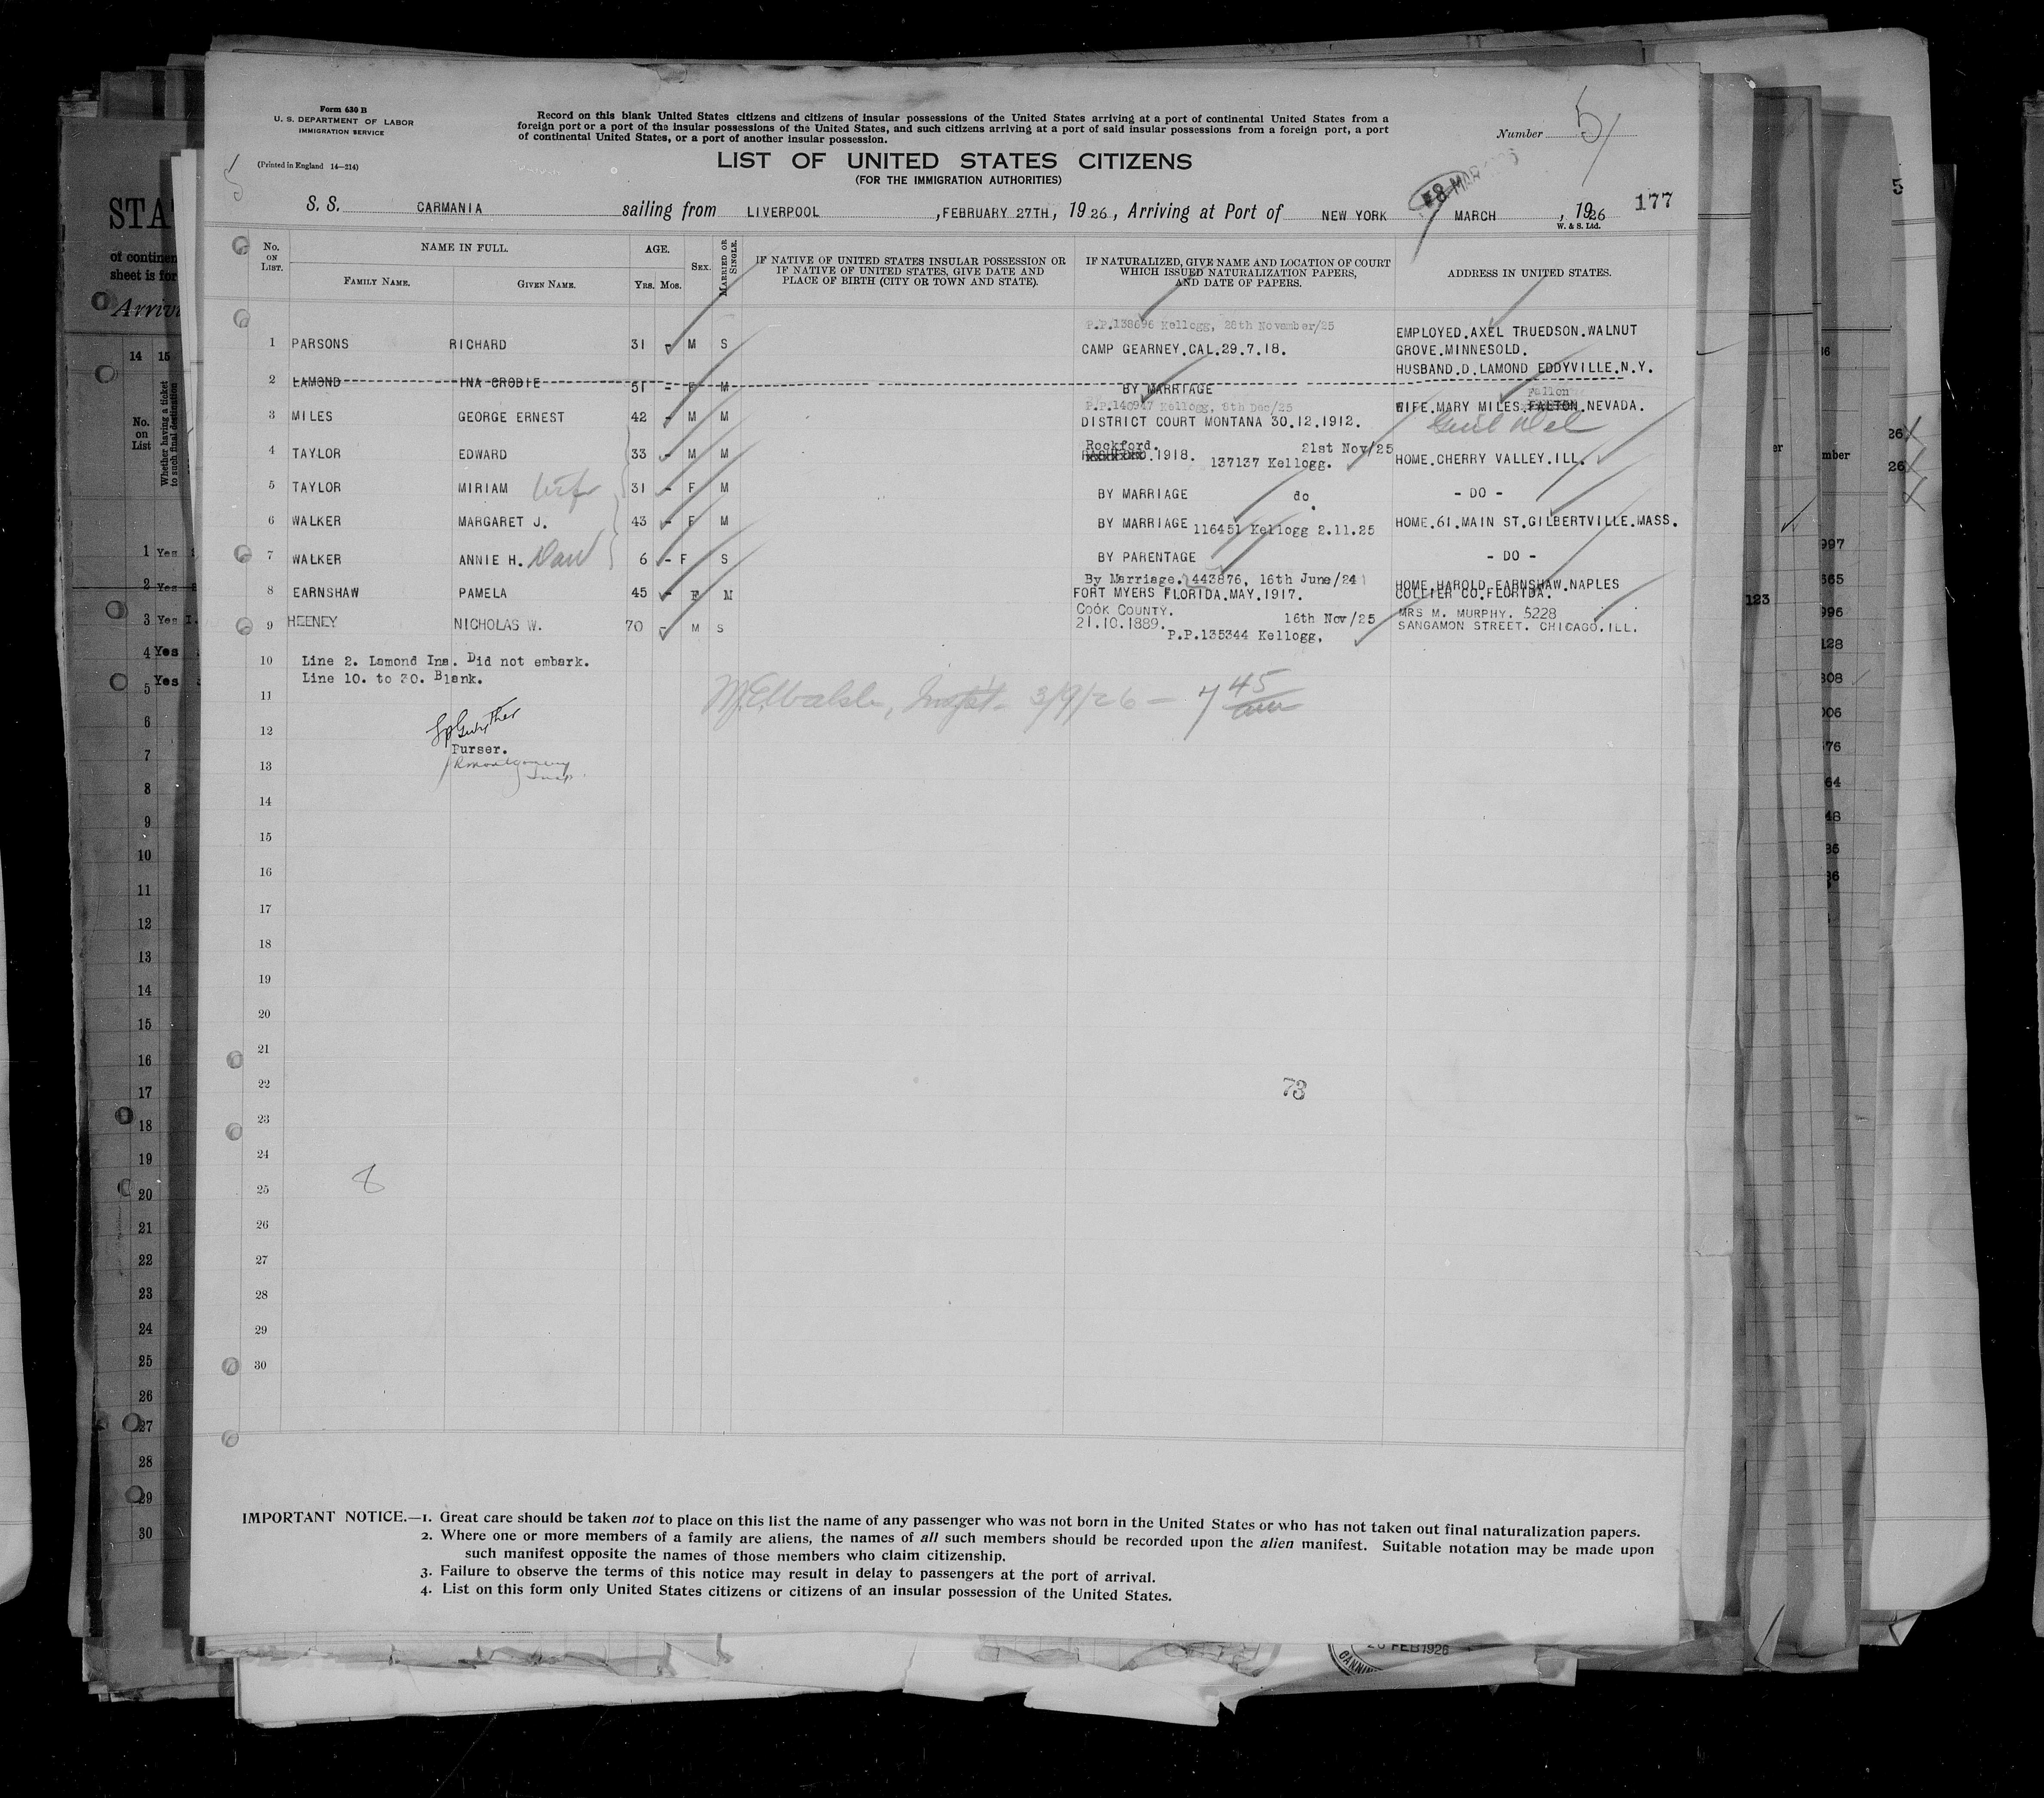 Form 630 B
U. S. DEPARTMENT OF LABOR
IMMIGRATION SERVICE
(Printed in England 14—214)
Record on this blank United States citizens and citizens of insular possessions of the United States arriving at a port of continental United States from a
foreign port or a port of the insular possessions of the United States, and such citizens arriving at a port of said insular possessions from a foreign port, a port
of continental United States, or a port of another insular possession.
Number 5
LIST OF UNITED STATES CITIZENS
(FOR THE IMMIGRATION AUTHORITIES)
S. S. CARMANIA sailing from LIVERPOOL, FEBRUARY 27TH, 1926, Arriving at Port of NEW YORK 8 MAR MARCH, 1926 177
W. & S. Ltd.
No. ON LIST. NAME IN FULL. AGE. SEX. MARRIED OR SINGLE.
FAMILY NAME. GIVEN NAME. YRS. MOS.
IF NATIVE OF UNITED STATES INSULAR POSSESSION OR
IF NATIVE OF UNITED STATES, GIVE DATE AND
PLACE OF BIRTH (CITY OR TOWN AND STATE).
IF NATURALIZED, GIVE NAME AND LOCATION OF COURT
WHICH ISSUED NATURALIZATION PAPERS,
AND DATE OF PAPERS.
ADDRESS IN UNITED STATES.
P.P.138696 Kellogg, 28th November/25
1 PARSONS RICHARD 31 - M S CAMP GEARNEY.CAL.29.7.18. EMPLOYED.AXEL TRUEDSON.WALNUT
GROVE.MINNESOLD.
2 LAMOND INA CRODIE 51 - F M BY MARRIAGE HUSBAND.D.LAMOND EDDYVILLE.N.Y.
P.P.140947 Kellogg, 8th Dec/25 Fallon
3 MILES GEORGE ERNEST 42 - M M DISTRICT COURT MONTANA 30.12.1912. WIFE.MARY MILES.FALTON.NEVADA.
Rockford. 21st Nov/25
4 TAYLOR EDWARD 33 - M M .1918. 137137 Kellogg. HOME.CHERRY VALLEY.ILL.
5 TAYLOR MIRIAM wife 31 - F M BY MARRIAGE do. - DO -
6 WALKER MARGARET J. 43 - F M BY MARRIAGE 116451 Kellogg 2.11.25 HOME.61.MAIN ST.GILBERTVILLE.MASS.
7 WALKER ANNIE H. Dau 6 - F S BY PARENTAGE - DO -
By Marriage. 443876, 16th June/24
8 EARNSHAW PAMELA 45 - F M FORT MYERS FLORIDA.MAY.1917. HOME.HAROLD EARNSHAW.NAPLES
COLLIER CO.FLORIDA.
COOK COUNTY. 16th Nov/25
9 HEENEY NICHOLAS W. 70 - M S 21.10.1889. P.P.135344 Kellogg, MRS M. MURPHY. 5228
SANGAMON STREET. CHICAGO.ILL.
10 Line 2. Lamond Ina. Did not embark.
Line 10. to 30. Blank.
11 3/9/26 — 7 45 am
12
Purser.
13 RMontgomery
Insp.
14
15
16
17
18
19
20
21
22 73
23
24
25 8
26
27
28
29
30
IMPORTANT NOTICE.—1. Great care should be taken not to place on this list the name of any passenger who was not born in the United States or who has not taken out final naturalization papers.
2. Where one or more members of a family are aliens, the names of all such members should be recorded upon the alien manifest. Suitable notation may be made upon
such manifest opposite the names of those members who claim citizenship.
3. Failure to observe the terms of this notice may result in delay to passengers at the port of arrival.
4. List on this form only United States citizens or citizens of an insular possession of the United States.
FEB 1926